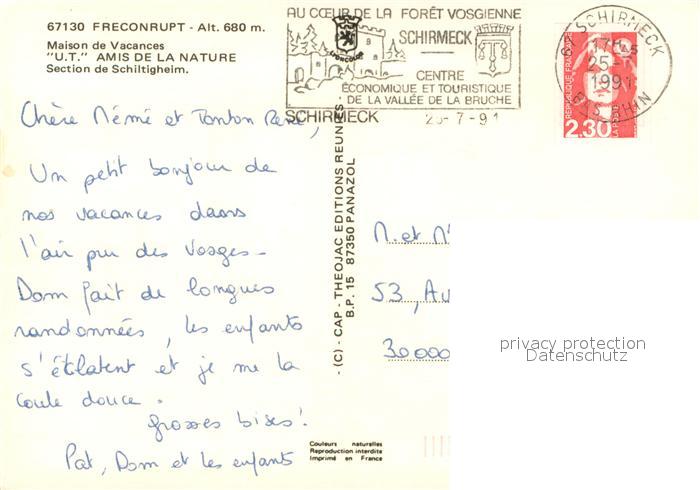 67130 FRECONRUPT - Alt. 680 m.
Maison de Vacances
"U.T." AMIS DE LA NATURE
Section de Schiltigheim.
AU CŒUR DE LA FORÊT VOSGIENNE
SCHIRMECK
CENTRE
ÉCONOMIQUE ET TOURISTIQUE
DE LA VALLÉE DE LA BRUCHE
SCHIRMECK
25-7-91
67 SCHIRMECK
17H
25-
1991
BAS RHIN
RÉPUBLIQUE FRANÇAISE
2,30
Chère Mémé et Tonton René,
Un petit bonjour de
nos vacances dans
l'air pur des Vosges -
Dom fait de longues
randonnées, les enfants
s'éclatent et je me la
coule douce.
grosses bises!
Pat, Dom et les enfants
- (C) - CAP - THEOJAC EDITIONS REUNIES
B.P. 15 87350 PANAZOL
M. et
53, Au
30000
privacy protection
Datenschutz
Couleurs naturelles
Reproduction interdite
Imprimé en France